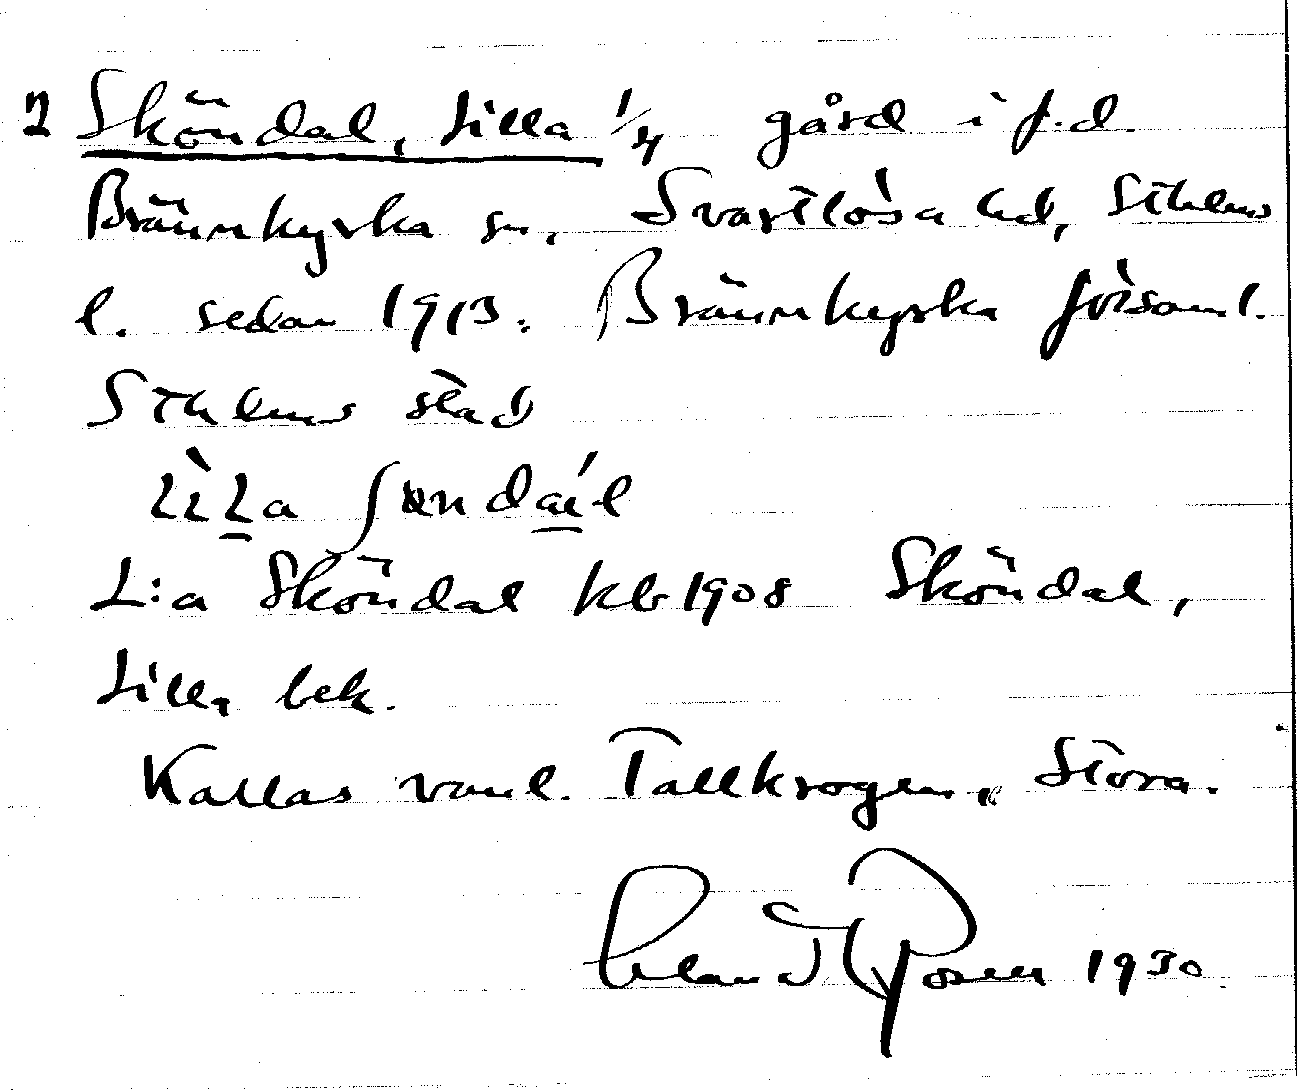 2 Sköndal, Lilla 1/4 gård i f.d.
Brännkyrka sn, Svartlösa hd, Sthlms
l. sedan 1913: Brännkyrka församl.
Sthlms stad
L:a Sköndal kb 1908 Sköndal,
Lilla bek.
Kallas vanl. Tallkrogen, Stora.
1930